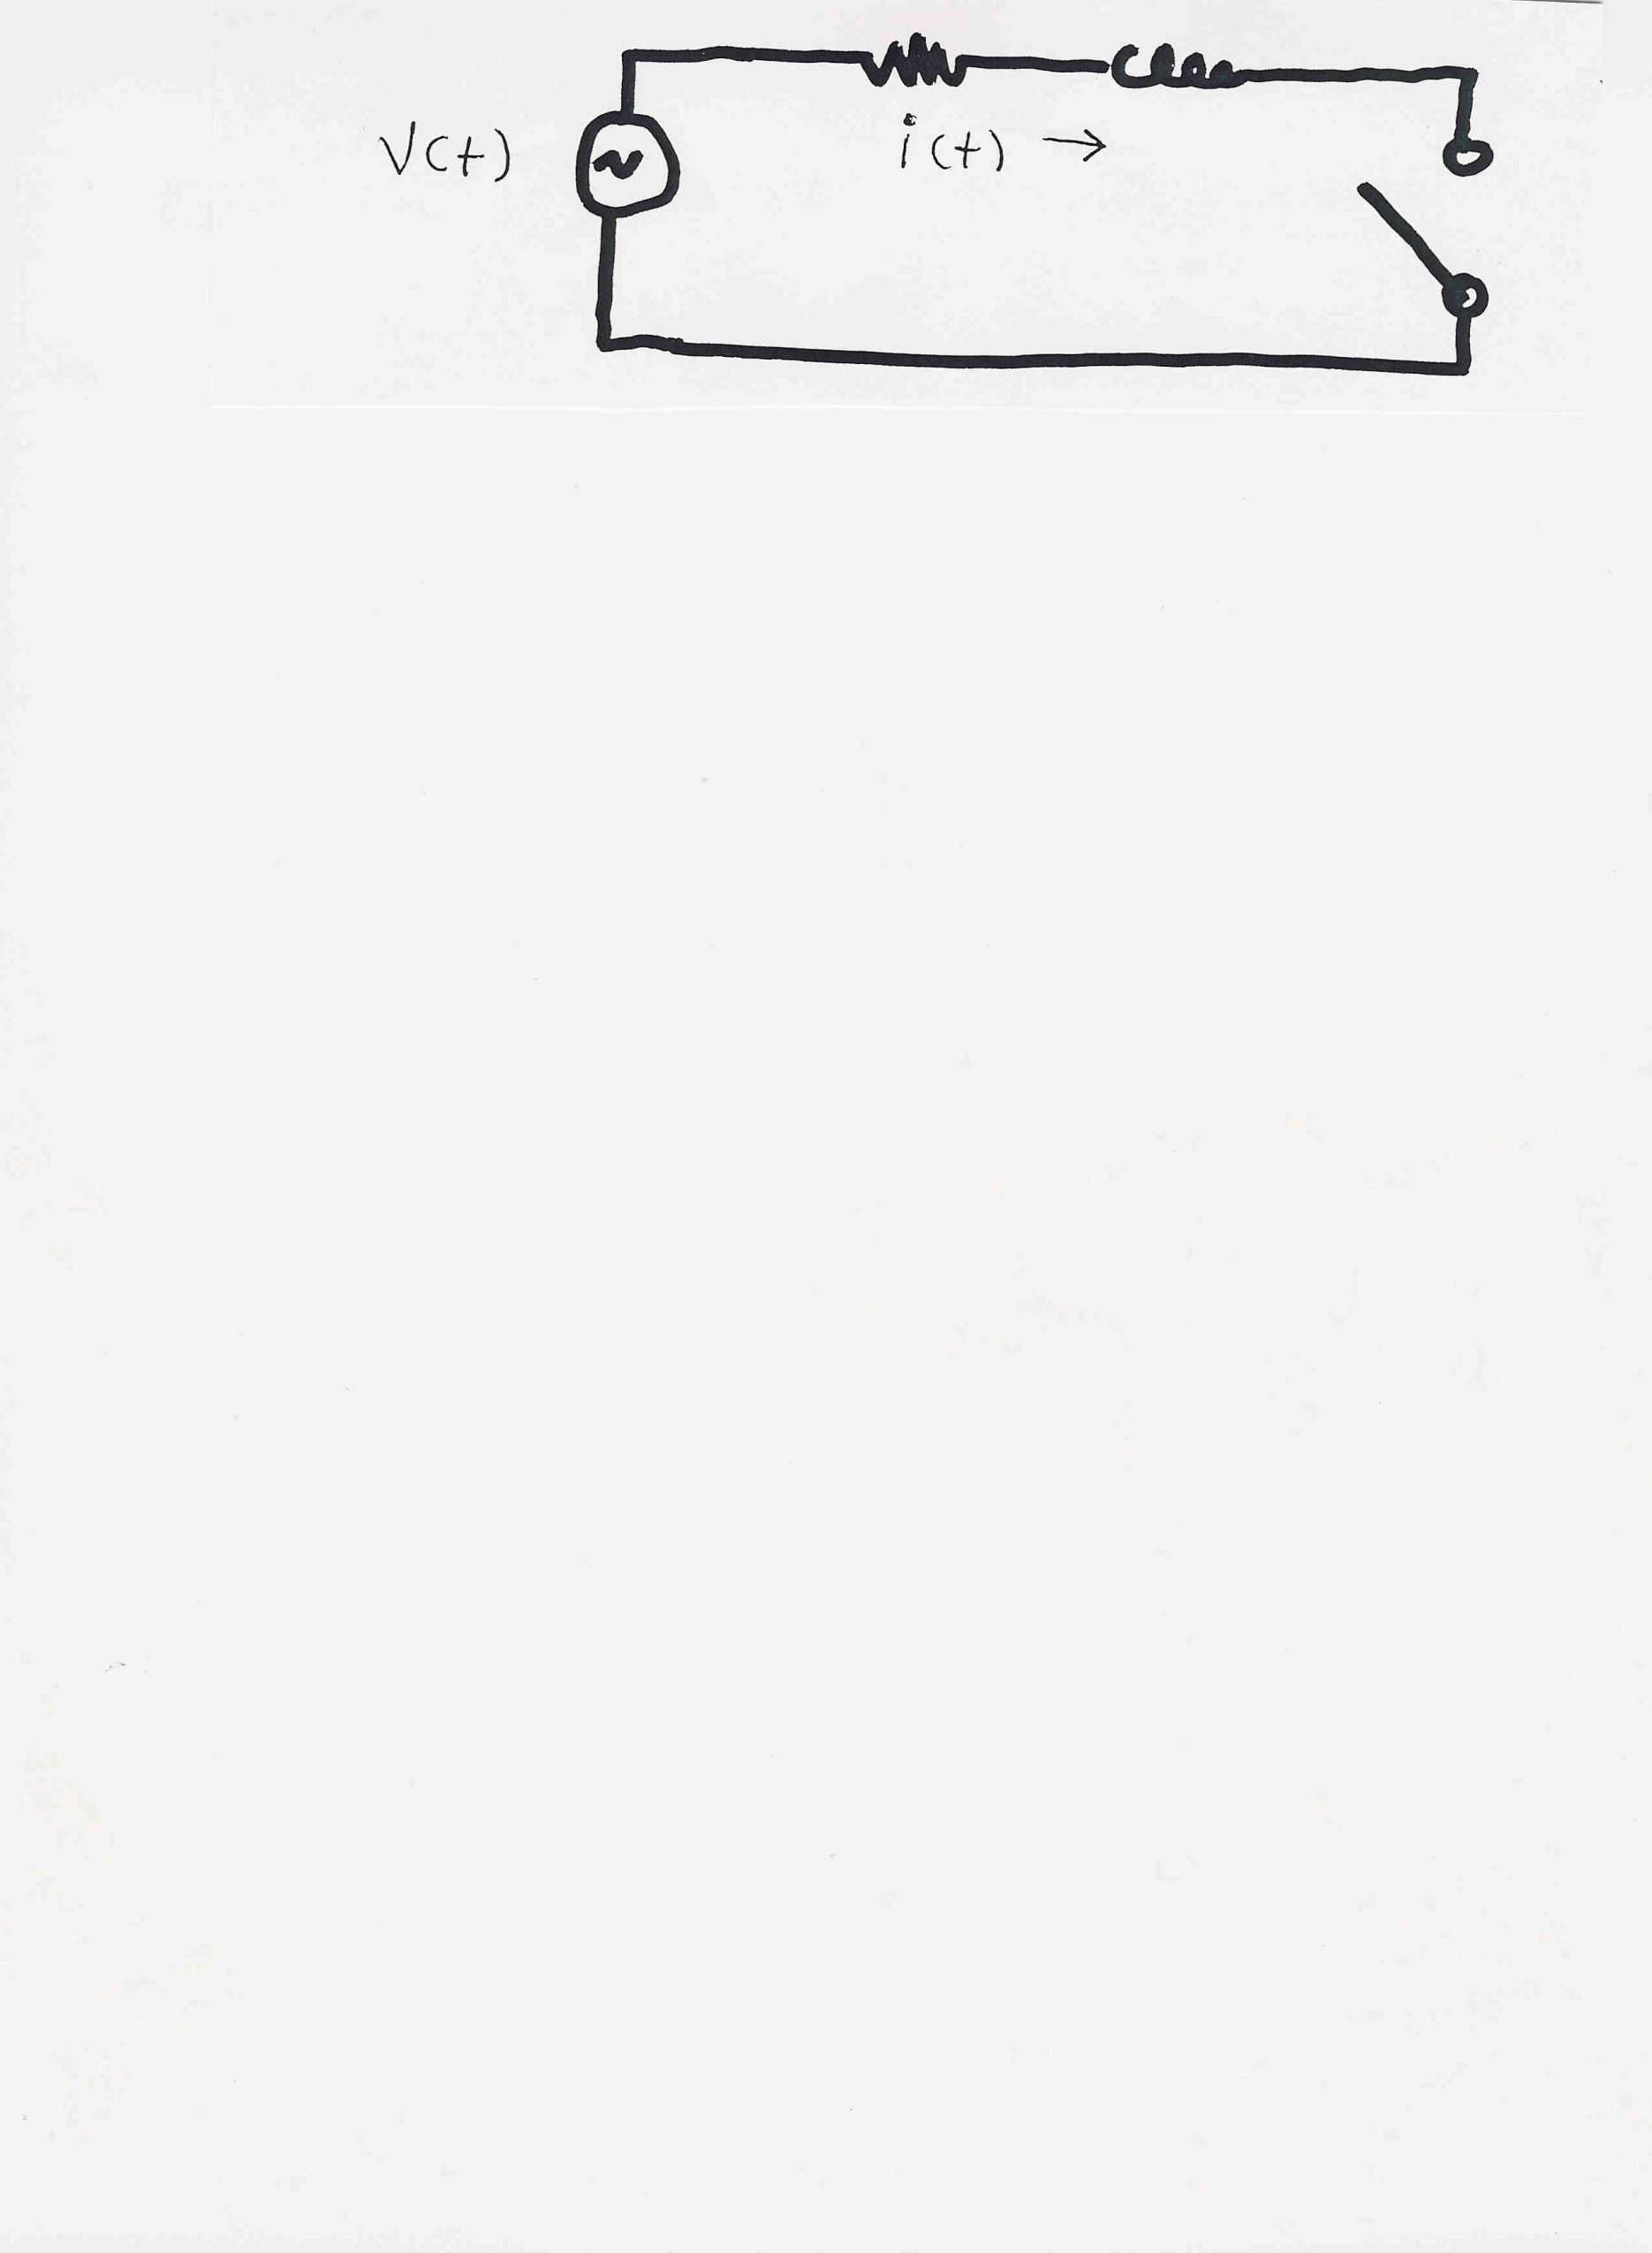 V(t)
i(t) →